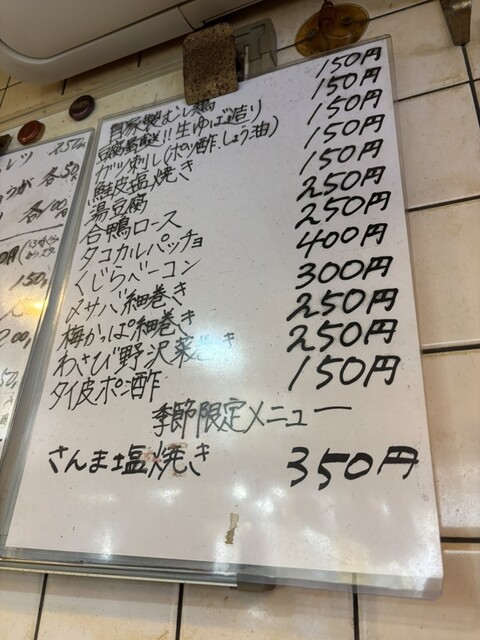 自家製むし鶏 150円
豆腐屋直送!!生ゆば造り 150円
ガツ刺し(ポン酢.しょう油) 150円
鮭皮塩焼き 150円
湯豆腐 150円
合鴨ロース 250円
タコカルパッチョ 250円
くじらベーコン 400円
〆サバ細巻き 300円
梅かっぱ細巻き 250円
わさび野沢菜巻き 250円
タイ皮ポン酢 150円
季節限定メニュー
さんま塩焼き 350円
レツ 250
うが 各50
各100
150